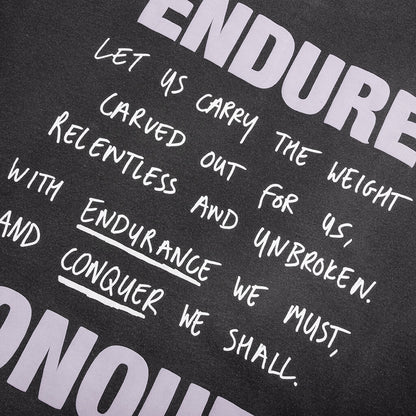 ENDURE
LET US CARRY THE WEIGHT
CARVED OUT FOR US,
RELENTLESS AND UNBROKEN.
WITH ENDURANCE WE MUST,
AND CONQUER WE SHALL.
ONQU